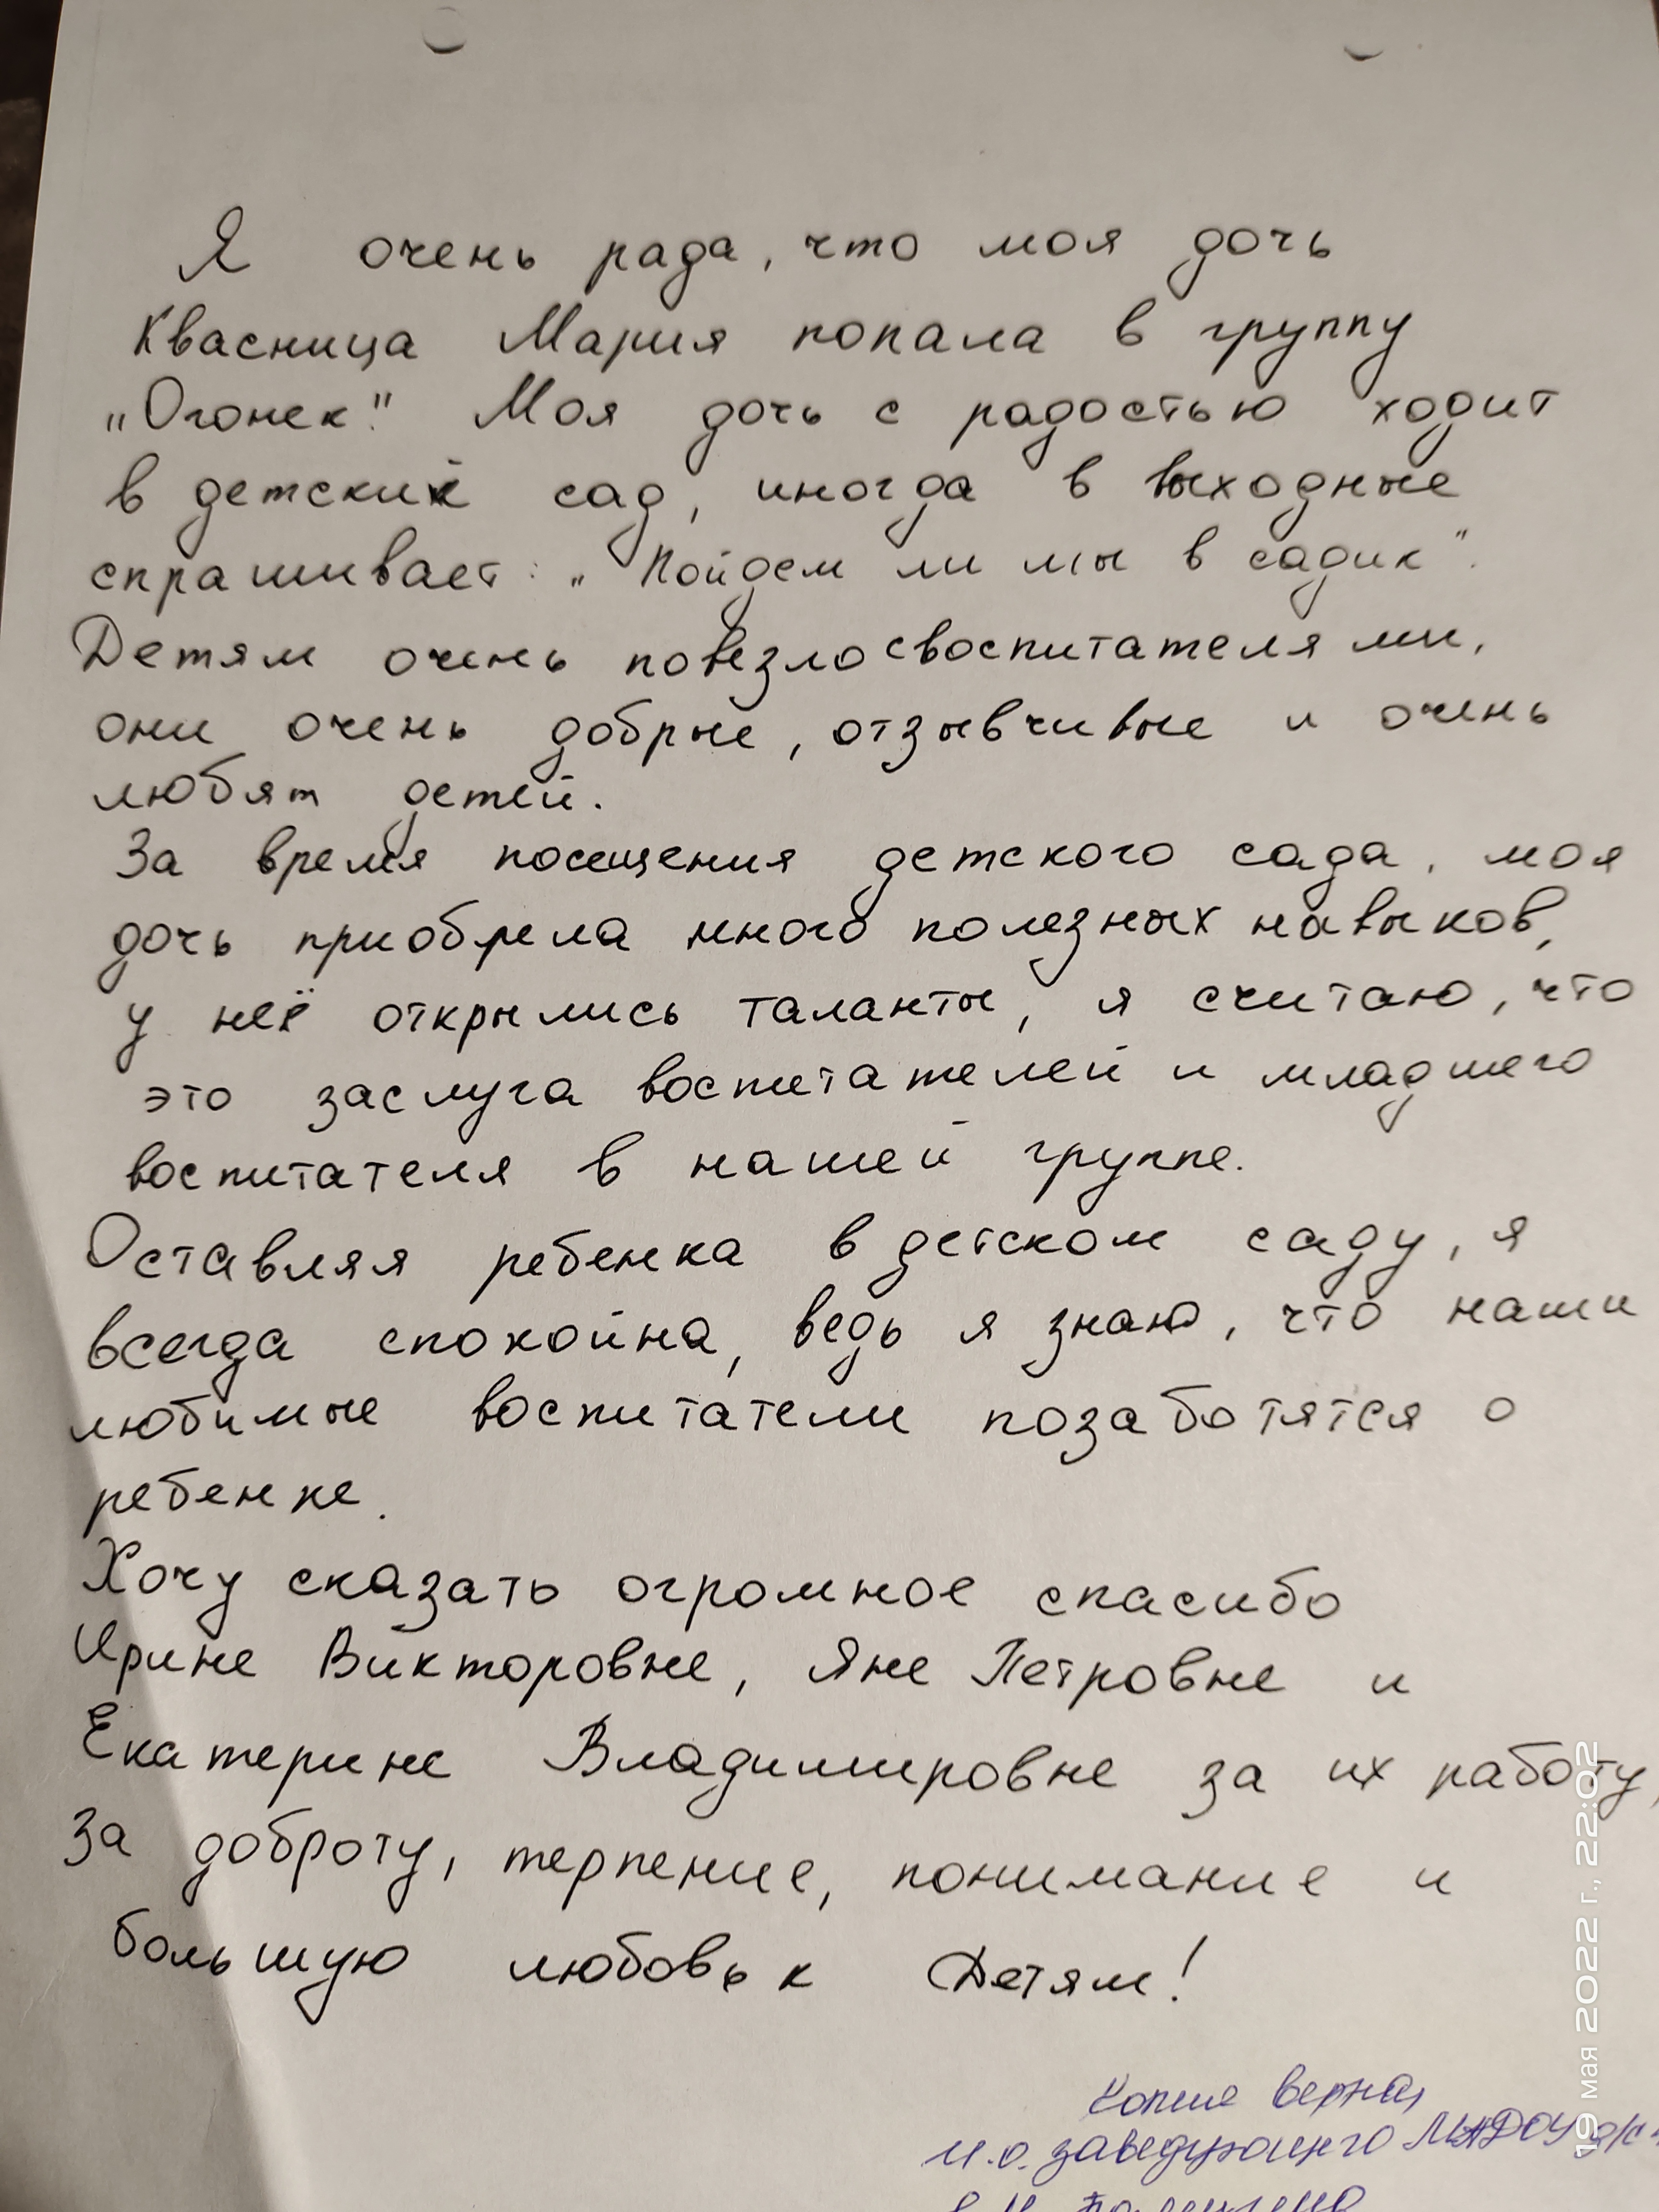 Я очень рада, что моя дочь
Квасница Мария попала в группу
„Огонек". Моя дочь с радостью ходит
в детский сад, иногда в выходные
спрашивает: „Пойдем ли мы в садик".
Детям очень повезло с воспитателями,
они очень добрые, отзывчивые и очень
любят детей.
За время посещения детского сада, моя
дочь приобрела много полезных навыков,
у неё открылись таланты, я считаю, что
это заслуга воспитателей и младшего
воспитателя в нашей группе.
Оставляя ребенка в детском саду, я
всегда спокойна, ведь я знаю, что наши
любимые воспитатели позаботятся о
ребенке.
Хочу сказать огромное спасибо
Ирине Викторовне, Яне Петровне и
Екатерине Владимировне за их работу,
за доброту, терпение, понимание и
большую любовь к Детям!
Копия верна,
и.о. заведующего МАДОУ д/с
19 мая 2022 г., 22:02